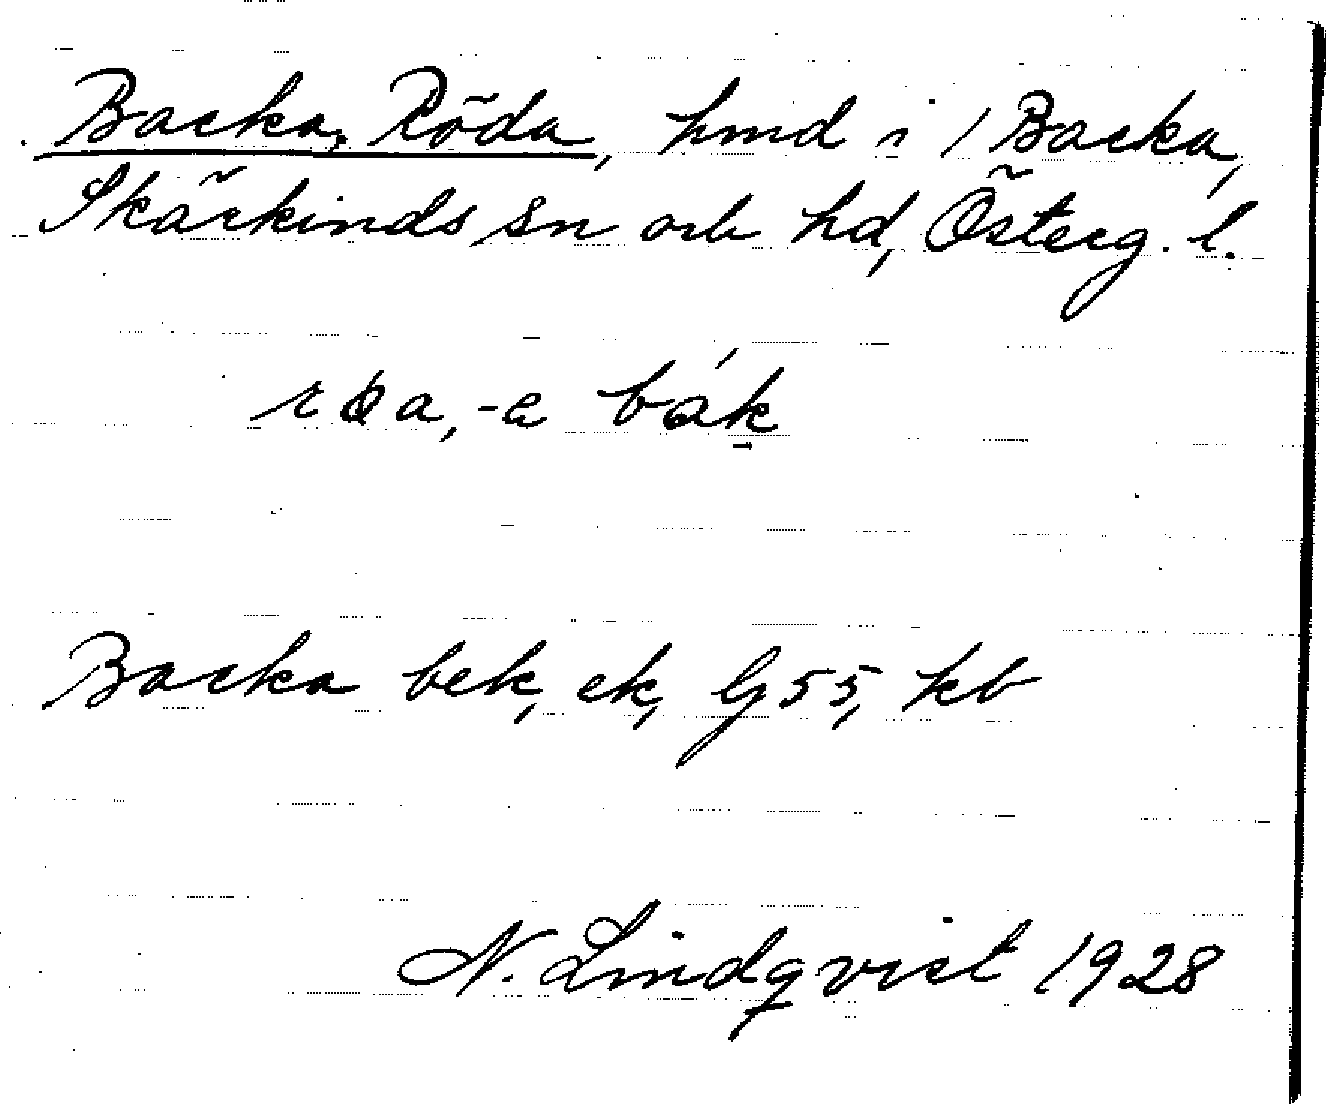 Backa, Röda, hmd i 1 Backa,
Skärkinds sn och hd, Österg. l.
røa, -e bak
Backa bek, ek, Gj 55, kb
N. Lindqvist 1928